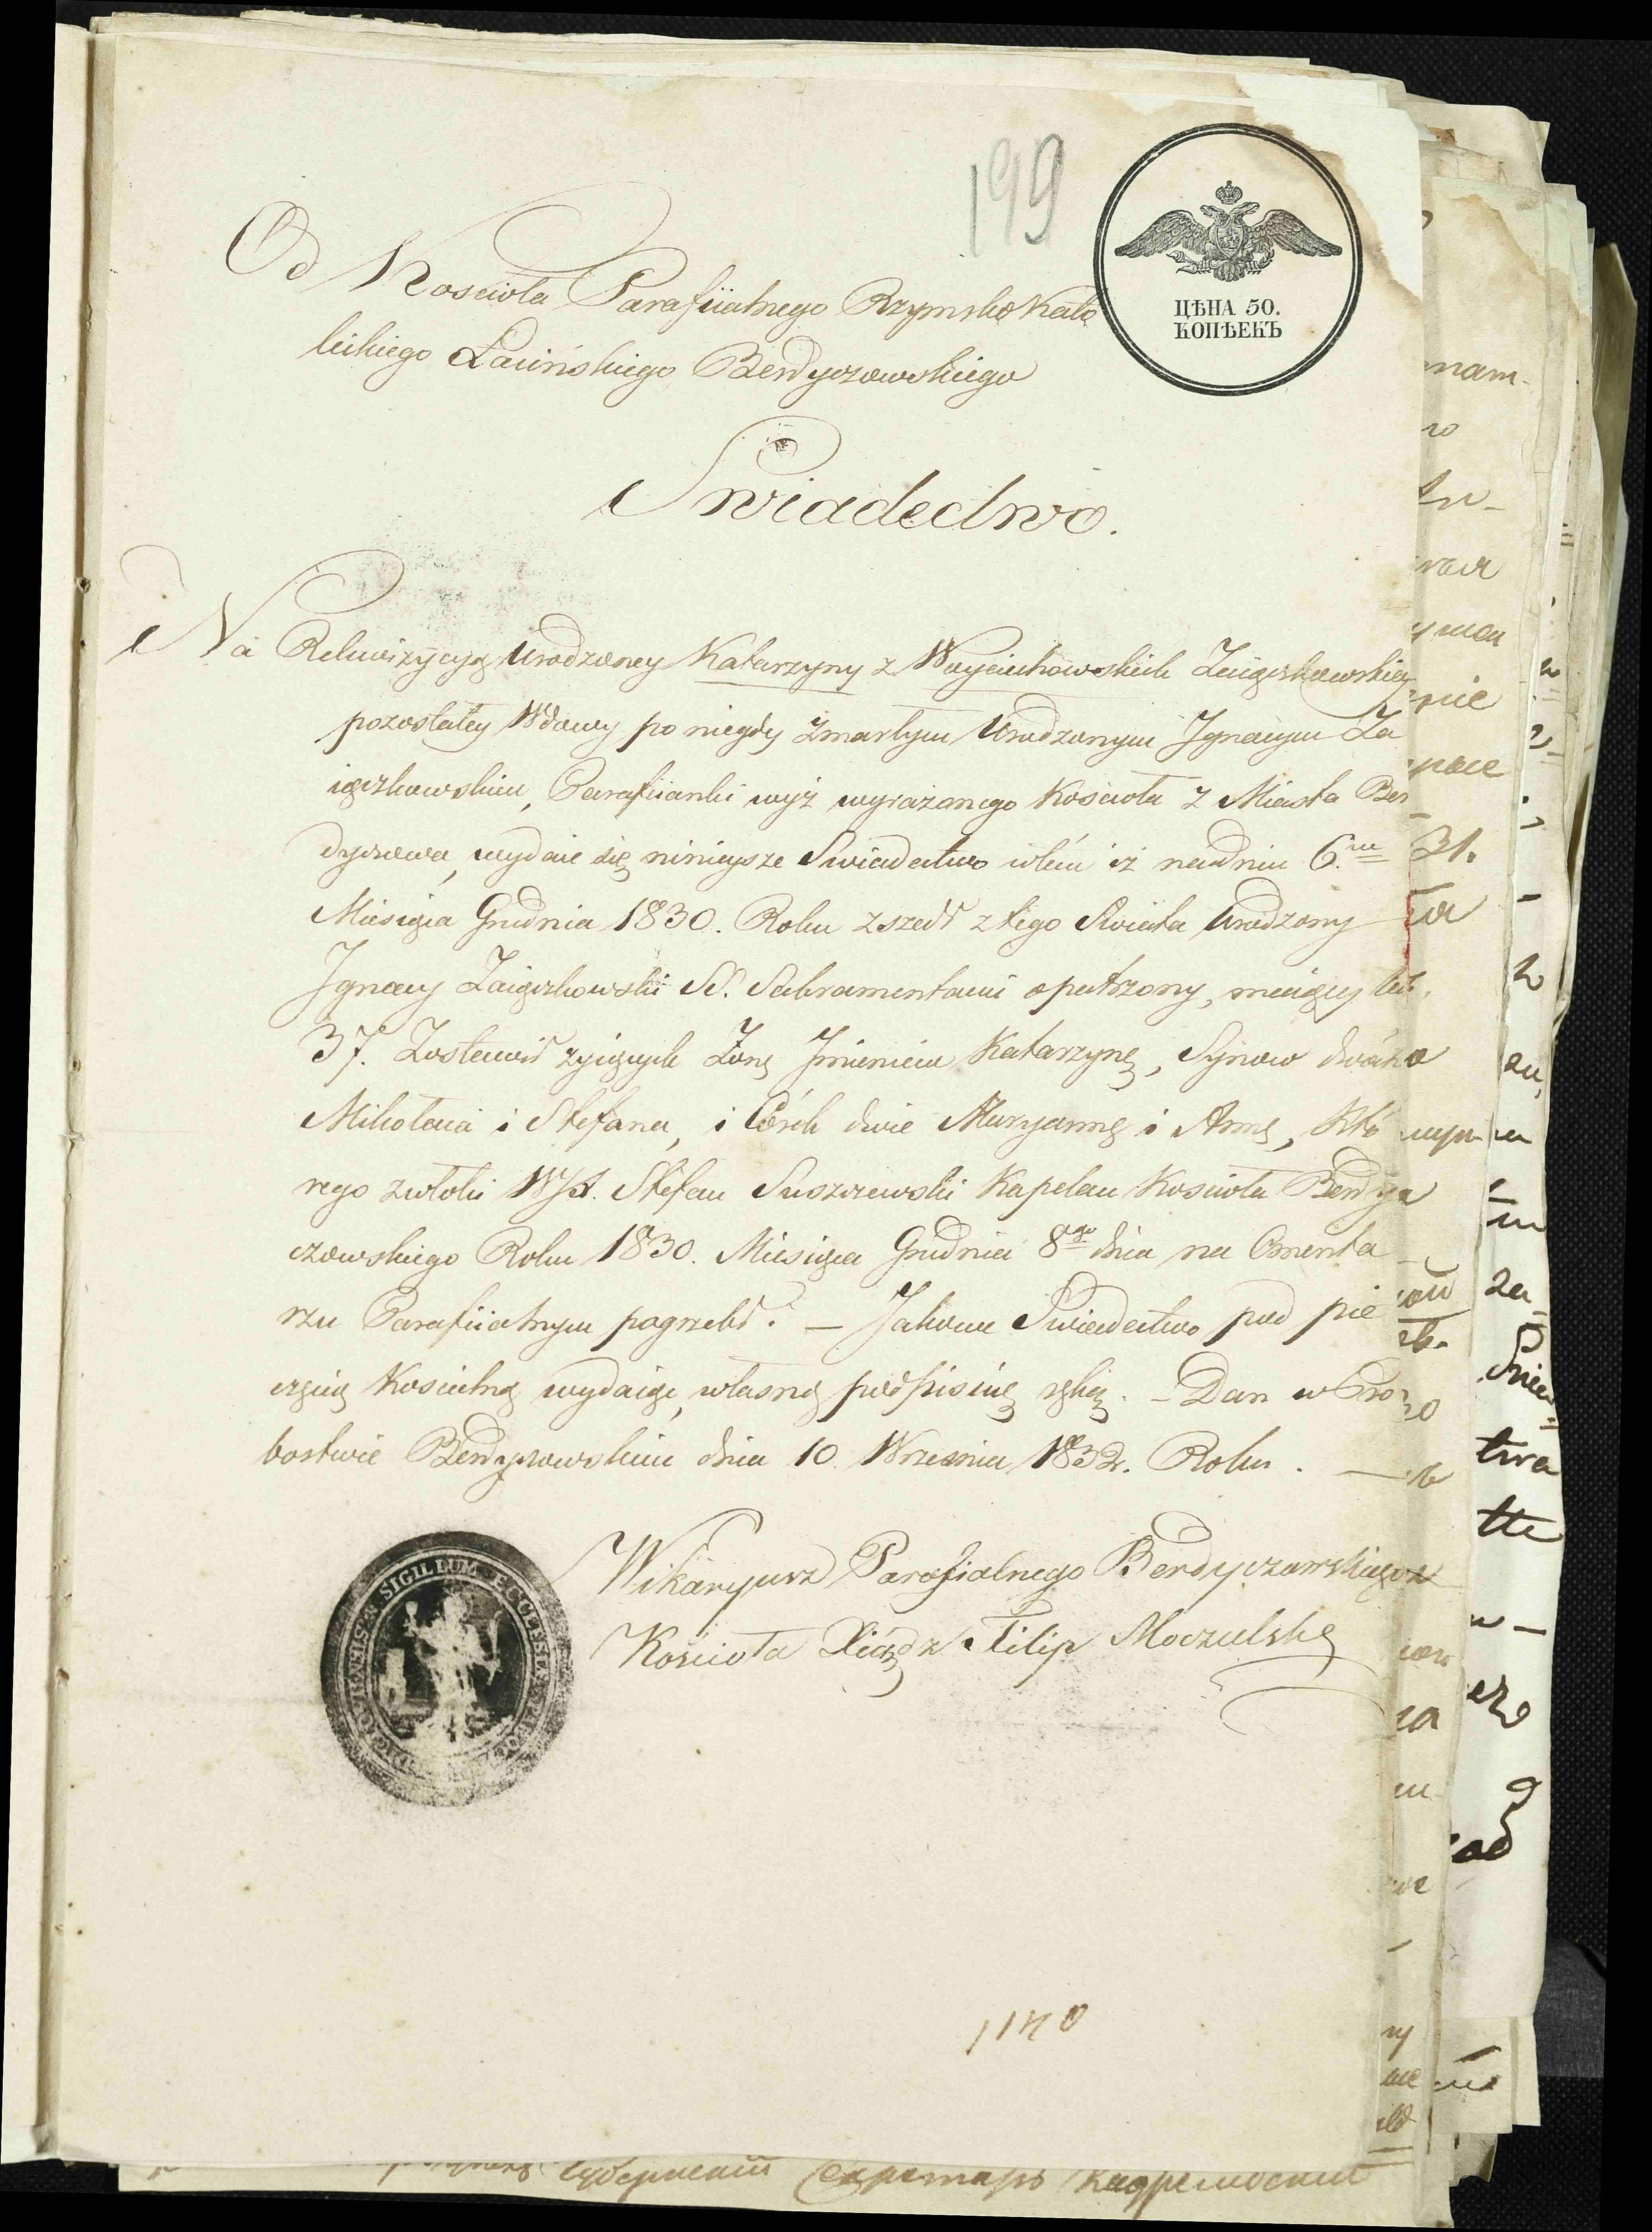 199
ЦѢНА 50.
КОПѢЕКЪ
Od Koscioła Parafiialnego Rzymsko Kato
lickiego Łacińskiego Berdyczowskiego
Swiadectwo.
Na Rekwizycyą Urodzoney Katarzyny z Woyciechowskich Zaiączkowskiey
pozostałey Wdowy po niegdy Zmarłym Urodzonym Jgnacym Za
iączkowskim, Parafiianki wyż wyrażonego Kościoła z Miasta Ber
dyczowa, wydaie się ninieysze Swiadectwo wtem iż nadniu 6.
Miesiąca Grudnia 1830. Roku zszedł z tego Swiata Urodzony
Jgnacy Zaiączkowski SS. Sakramentami opatrzony, maiący lat.
37. Zostawił żyiących Żonę Jmieniem Katarzynę, Synow dwóch
Mikołaia i Stefana, i Córek dwie Maryannę i Annę, Któ
rego zwłoki WJX. Stefan Suszczewski Kapelan Kosciola Berdy
czowskiego Roku 1830. Miesiąca Grudnia 8go dnia na Cmenta
rzu Parafiialnym pogrzebł. — Jakowe Swiadectwo pod pie
częcią Kościelną wydaiąc, własną podpisuię ręką. — Dan w Pro
bostwie Berdyczowskim dnia 10 Wrzesnia 1832. Roku. —
Wikaryusz Parafialnego Berdyczowskiego
Kościoła Xiądz Filip Moczulski
SIGILLUM ECCLESIÆ
1140
Губернскій Секретарь